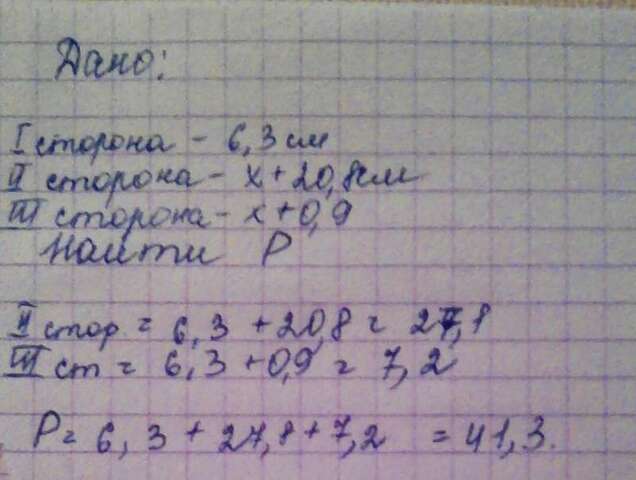 Дано:
I сторона - 6,3 см
II сторона - x + 20,8 см
III сторона - x + 0,9
Найти P
II стор = 6,3 + 20,8 = 27,1
III ст = 6,3 + 0,9 = 7,2
P = 6,3 + 27,8 + 7,2 = 41,3.